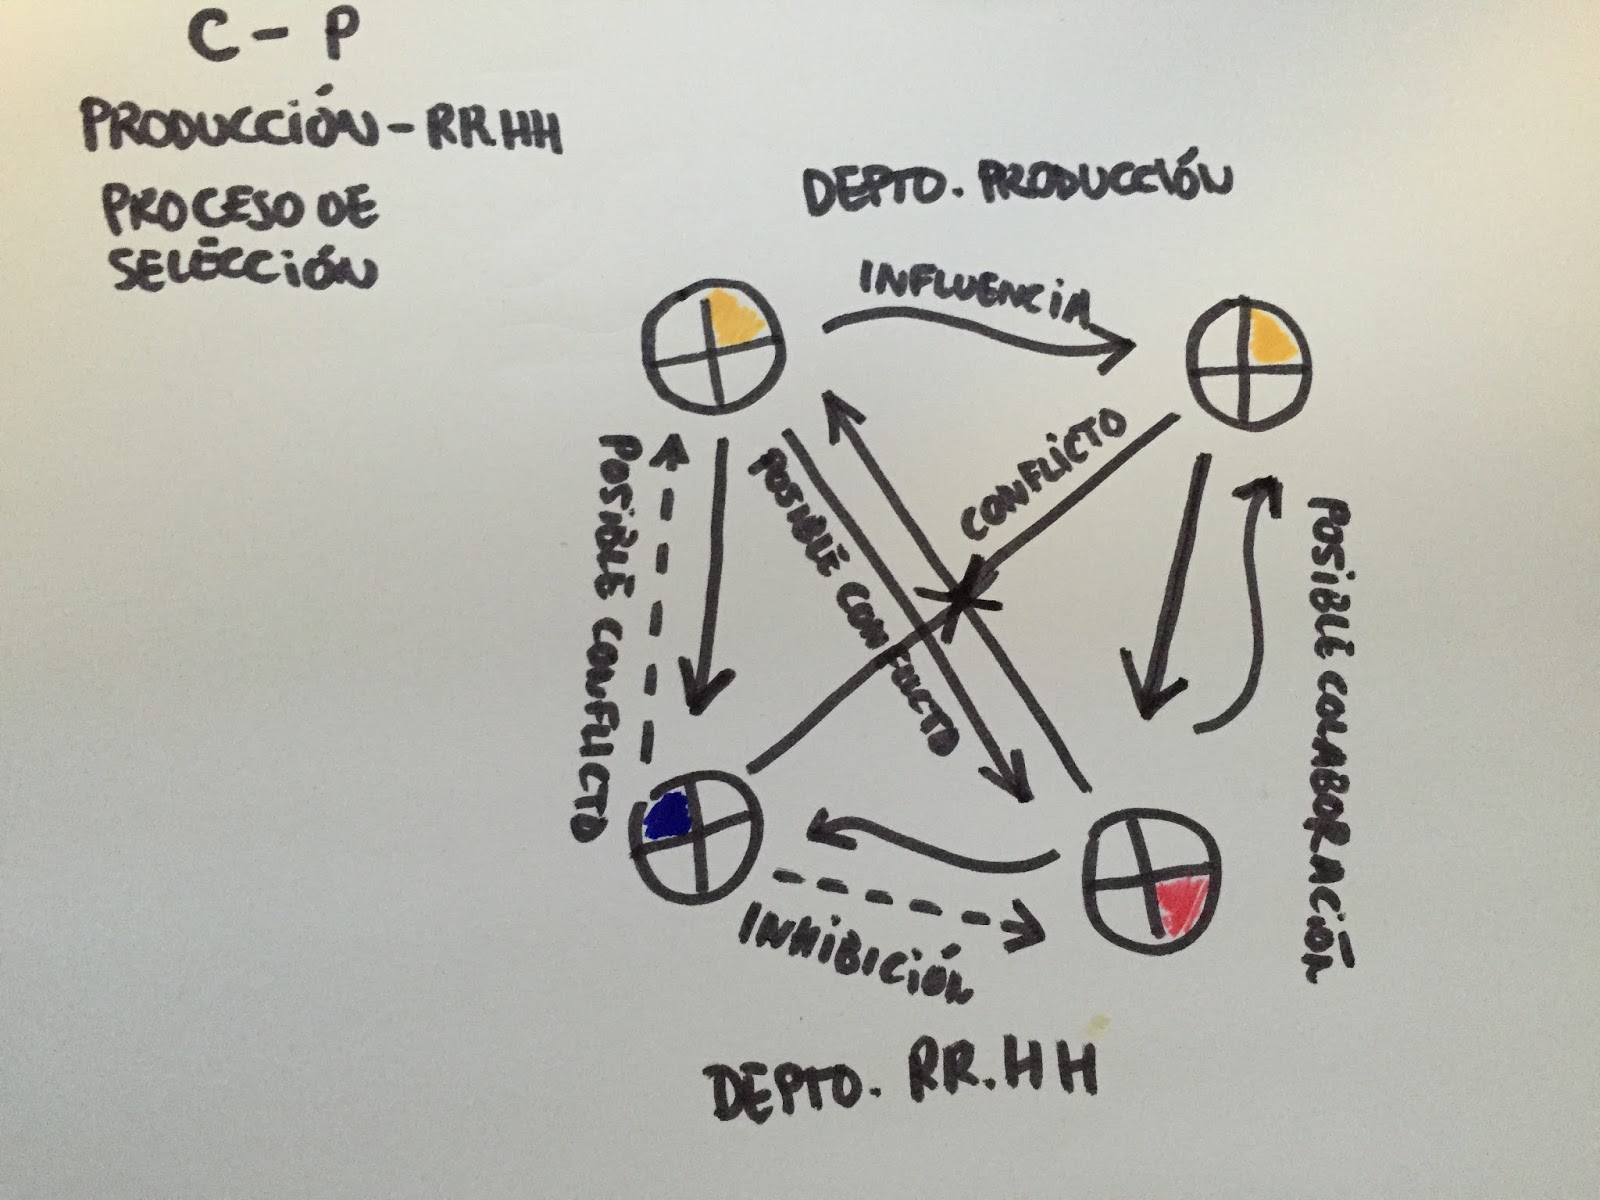 C - P
PRODUCCIÓN - RR.HH
PROCESO DE
SELECCIÓN
DEPTO. PRODUCCIÓN
INFLUENCIA
CONFLICTO
POSIBLE CONFLICTO
POSIBLE CONFLICTO
POSIBLE COLABORACIÓN
INHIBICIÓN
DEPTO. RR.HH